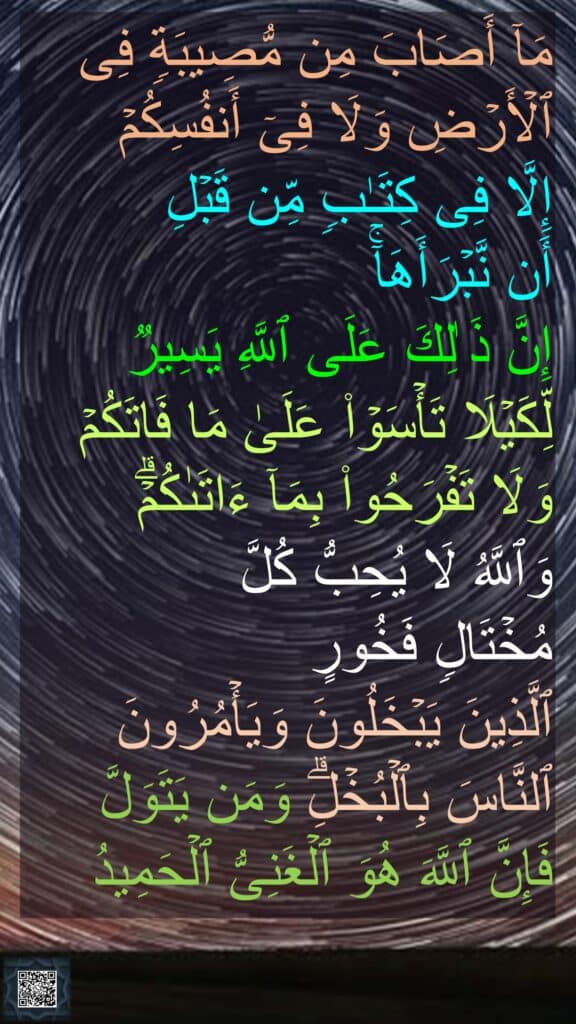 مَآ أَصَابَ مِن مُّصِيبَةٍۢ فِى
ٱلْأَرْضِ وَلَا فِىٓ أَنفُسِكُمْ
إِلَّا فِى كِتَـٰبٍۢ مِّن قَبْلِ
أَن نَّبْرَأَهَآ ۚ
إِنَّ ذَٰلِكَ عَلَى ٱللَّهِ يَسِيرٌۭ
لِّكَيْلَا تَأْسَوْا۟ عَلَىٰ مَا فَاتَكُمْ
وَلَا تَفْرَحُوا۟ بِمَآ ءَاتَىٰكُمْ ۗ
وَٱللَّهُ لَا يُحِبُّ كُلَّ
مُخْتَالٍۢ فَخُورٍ
ٱلَّذِينَ يَبْخَلُونَ وَيَأْمُرُونَ
ٱلنَّاسَ بِٱلْبُخْلِ ۗ وَمَن يَتَوَلَّ
فَإِنَّ ٱللَّهَ هُوَ ٱلْغَنِىُّ ٱلْحَمِيدُ